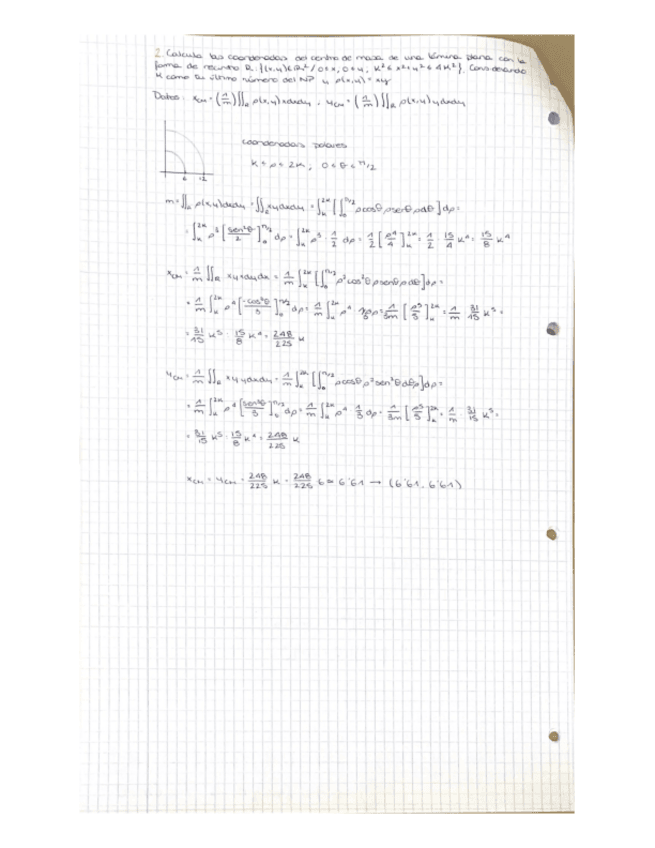 2. Calcula las coordenadas del centro de masa de una lámina plana con la
forma de recinto R: {(x,y)∈R²/ 0≤x, 0≤y, K²≤x²+y²≤4K²}. Considerando
K como tu último número del NP y ρ(x,y)=xy
Datos: x_CM = (1/m)∬_R ρ(x,y)xdxdy, y_CM = (1/m)∬_R ρ(x,y)ydxdy
coordenadas polares
K ≤ ρ ≤ 2K; 0≤θ≤π/2
6 12
m = ∬_R ρ(x,y)dxdy = ∬_R xydxdy = ∫_K^2K [∫_0^π/2 ρcosθ ρsenθ ρdθ]dρ =
= ∫_K^2K ρ³ [sen²θ/2]_0^π/2 dρ = ∫_K^2K ρ³ · 1/2 dρ = 1/2 [ρ⁴/4]_K^2K = 1/2 · 15/4 K⁴ = 15/8 K⁴
x_CM = 1/m ∬_R xyxdydx = 1/m ∫_K^2K [∫_0^π/2 ρ²cos²θ ρsenθ ρdθ]dρ =
= 1/m ∫_K^2K ρ⁴ [-cos³θ/3]_0^π/2 dρ = 1/m ∫_K^2K ρ⁴ 1/3 dρ = 1/3m [ρ⁵/5]_K^2K = 1/m 31/15 K⁵ =
= 31/15 K⁵ : 15/8 K⁴ = 248/225 K
y_CM = 1/m ∬_R xyydxdy = 1/m ∫_K^2K [∫_0^π/2 ρcosθ ρ²sen²θ dθρ]dρ =
= 1/m ∫_K^2K ρ⁴ [sen³θ/3]_0^π/2 dρ = 1/m ∫_K^2K ρ⁴ 1/3 dρ = 1/3m [ρ⁵/5]_K^2K = 1/m · 31/15 K⁵ =
= 31/15 K⁵ : 15/8 K⁴ = 248/225 K
x_CM = y_CM = 248/225 K = 248/225 6 = 6'61 → (6'61, 6'61)